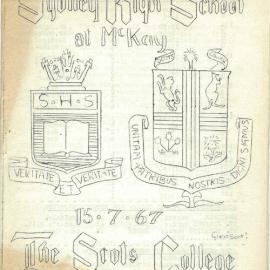 Sydney High School
at McKay
S·H·S
VERITATE ET VERITATE
UT SIM PATRIBUS NOSTRIS DIGNI SIMUS
15.7.67
The Scots College